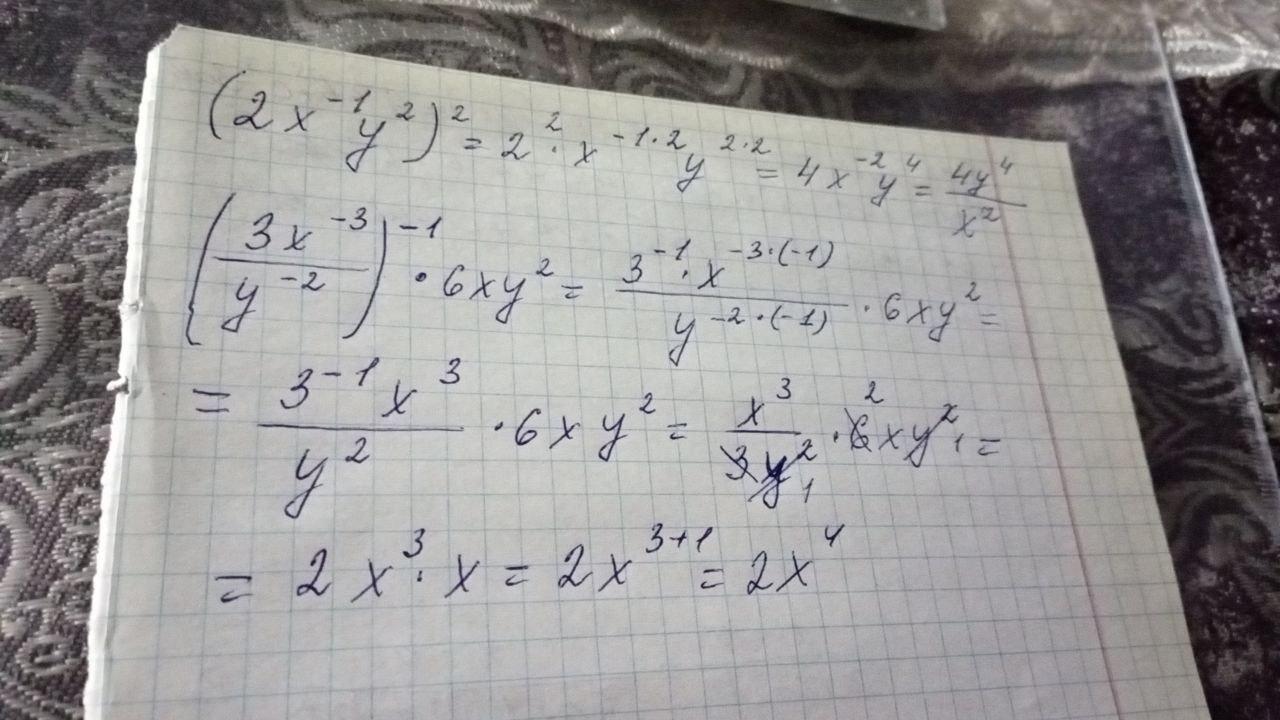 (2x⁻¹y²)² = 2² · x⁻¹·² y²·² = 4x⁻²y⁴ = 4y⁴/x²
(3x⁻³/y⁻²)⁻¹ · 6xy² = 3⁻¹ · x⁻³·⁽⁻¹⁾/y⁻²·⁽⁻¹⁾ · 6xy² =
= 3⁻¹x³/y² · 6xy² = x³/3y² 1 · 6 2 xy² 1 =
= 2x³ · x = 2x³⁺¹ = 2x⁴